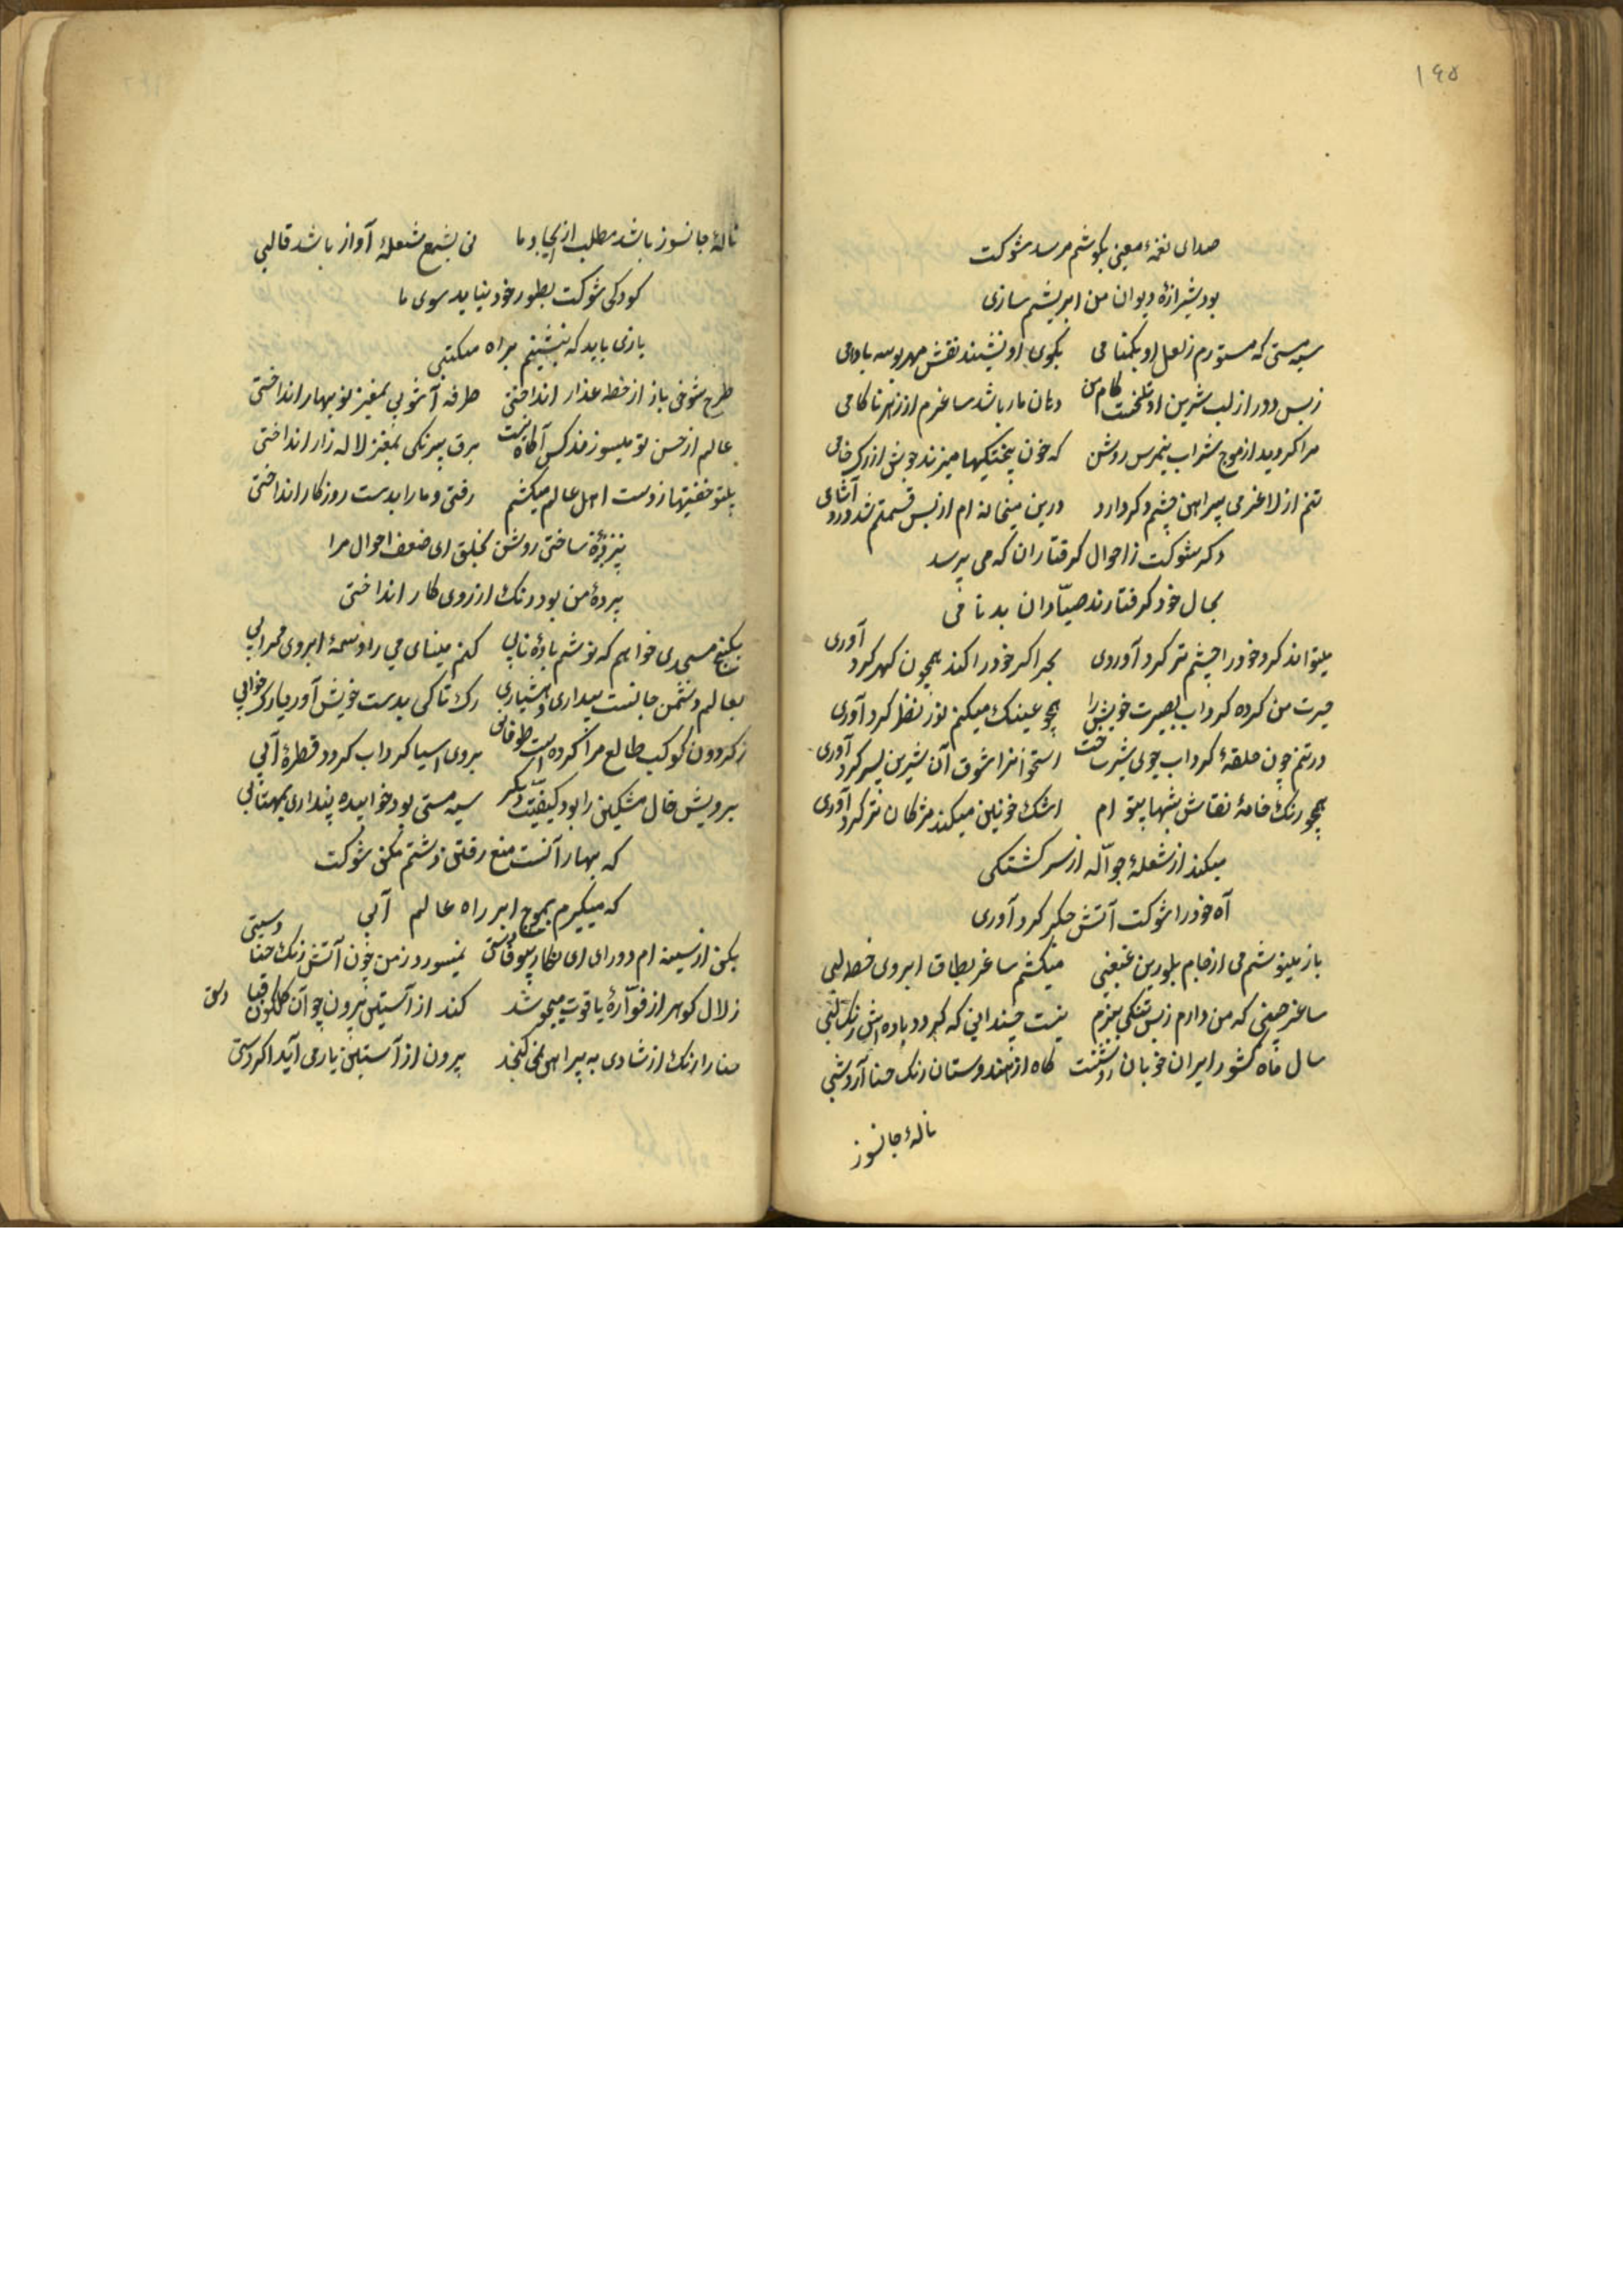 ۱۶۵
صدای نغمهٔ معنی بکوشم مرسد شوکت
بود شیرازهٔ دیوان من ابریشم سازی
سیه مستی که مستورم ز لعل او بکمنامی بکوی او نشیند نقش مهر بوسه بادامی
ز بس دور از لب شیرین او تلخست کام من دهان مار باشد ساغرم از زهر ناکامی
مرا کردید از موج شراب نیمرس روشن که خون پختکیها میزند جوش از رک خامی
تنم از لاغری پیراهن چشم دکر دارد درین میخانه ام از بس قسمتم شد درد آشامی
دکر شوکت ز احوال کرفتاران که می پرسد
بحال خود کرفتارند صیّادان بدنامی
میتواند کرد خود را چشم تر کرد آوردی بحر اکر خود را کند همچون کهر کرد آوری
حیرت من کرده کرداب بصیرت خویش را همچو عینک میکنم نور نظر کرد آوری
در تنم چون حلقهٔ کرداب جوی شیر ساخت استخوانرا شوق آن شیرین پسر کرد آوری
همچو رنک خامهٔ نقاش شبها بیتو ام اشک خونین میکند مژکان تر کرد آوری
میکند از شعلهٔ جوّاله از سرکشتکی
آه خود را شوکت آتش جکر کرد آوری
باز مینوشم می از جام بلورین غبغبی میکشم ساغر بطاق ابروی خط لبی
ساغر چینی که من دارم ز بس تنکی بزم نیست چندانی که کیرد باده اش رنک لبی
سال و ماه کشور ایران خوبان روشنست کاه از هندوستان رنک حنا آرد شبی
نالهٔ جانسوز
نالهٔ جانسوز باشد مطلب از ایجاد ما نی بشمع شعلهٔ آواز باشد قالبی
کودکی شوکت بطور خود نیاید سوی ما
بازی باید که بنشینم براه مکتبی
طرح شوخی باز از خط عذار انداختی طرفه آشوبی بمغز نوبهار انداختی
عالم از حسن تو میسوزند کس آکاه نیست برق بیرنکی بمغز لاله زار انداختی
بیتو خفیتها ز دست اهل عالم میکشم رفتی و ما را بدست روزکار انداختی
ساختی روشن بخلق ای ضعف احوال مرا
پردهٔ من بود رنک از روی کار انداختی
بکنج مسجدی خواهم که نوشم بادهٔ نابی کنم مینای می را وسمهٔ ابروی محرابی
بعالم دشمن جانست بیداری و هشیاری رک تاکی بدست خویش آور یا رک خوابی
ز کردون کوکب طالع مرا کرده است طوفانی بروی آسیا کرداب کردد قطرهٔ آبی
برویش خال مشکین را بود کیفیّت دیکر سیه مستی بود خوابیده پنداری بمهتابی
که بهار آنست منع رفتن دشتم مکن شوکت
که میکیرم بموج ابر راه عالم آبی
بکن از سینه ام دور ای نکار بیوفا دستی نمیسورد ز من چون آتش رنک حنا دستی
زلال کوهر از فوّارهٔ یاقوت میجوشد کند از آستین بیرون چو آن کلکون قبا دستی
حنا را رنک از شادی به پیراهن نمی کنجد برون از آستین یار می آید اکر دستی